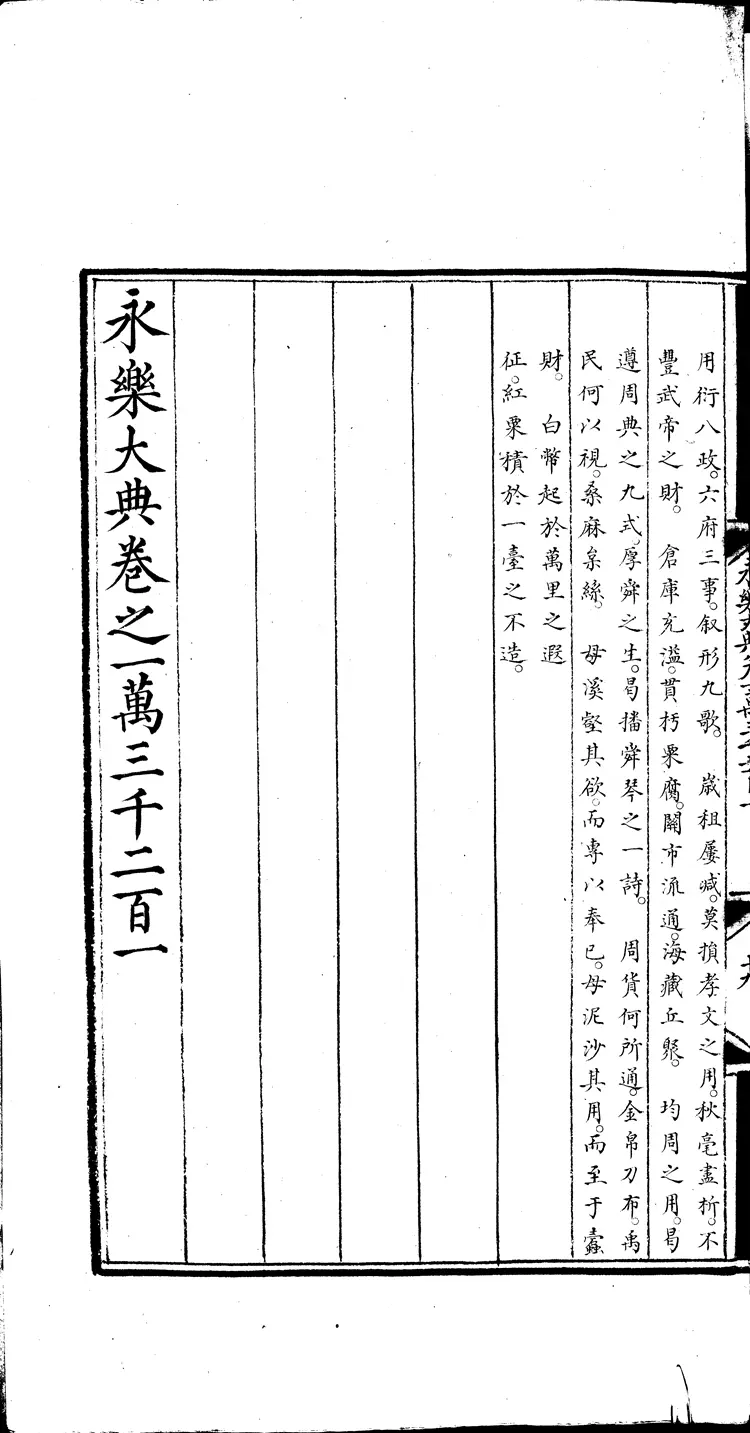 用衍八政。六府三事。叙形九歌。　歲租屢減。莫損孝文之用。秋毫盡析。不
豐武帝之財。　倉庫充溢。貫朽粟腐。關市流通。海藏丘聚。　均周之用。曷
遵周典之九式。厚舜之生。曷播舜琴之一詩。　周貨何所通。金帛刀布。禹
民何以視。桑麻枲絲。　毋溪壑其欲。而專以奉已。毋泥沙其用。而至于蠹
財。　白幣起於萬里之遐
征。紅粟積於一臺之不造。
永樂大典卷之一萬三千二百一